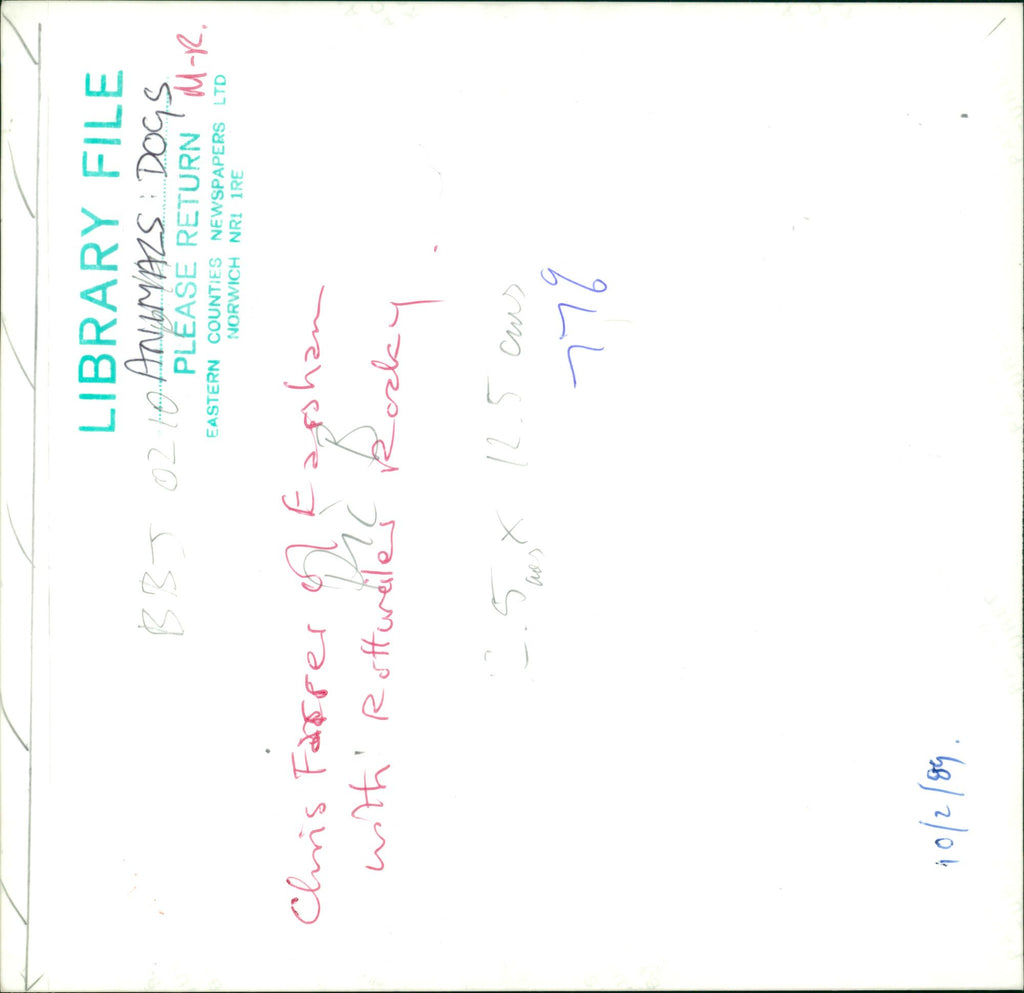 LIBRARY FILE
ANIMALS: DOGS
M-R.
PLEASE RETURN
EASTERN COUNTIES NEWSPAPERS LTD
NORWICH NR1 1RE
BBJ 0210
Chris Farrer of Earsham
with Rottweiler Rocky
PIC B
.5 cms x 12.5 cms
776
10/2/89.